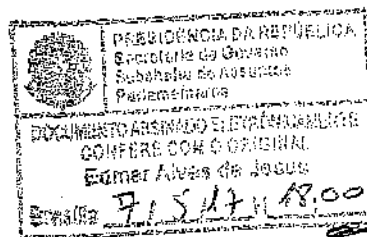 PRESIDÊNCIA DA REPÚBLICA
Secretaria de Governo
Subchefia de Assuntos
Parlamentares
DOCUMENTO ASSINADO ELETRÔNICAMENTE
CONFERE COM O ORIGINAL
Edmar Alves de Jesus
Brasília 7 / 5 / 17 18:00